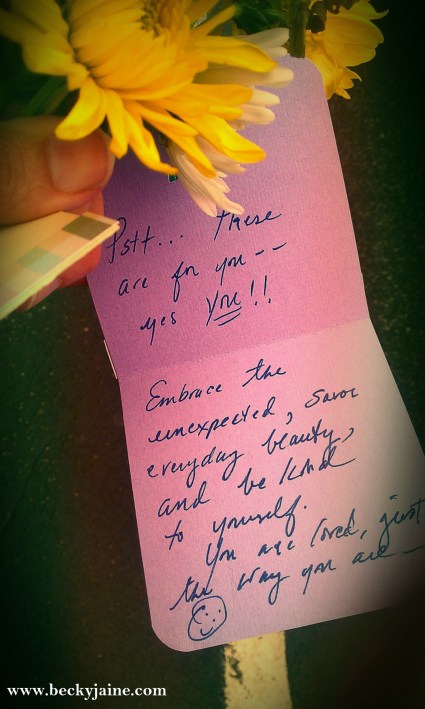 Pstt... these
are for you--
yes you!!
Embrace the
unexpected, savor
everyday beauty,
and be kind
to yourself.
You are loved, just
the way you are—
www.beckyjaine.com